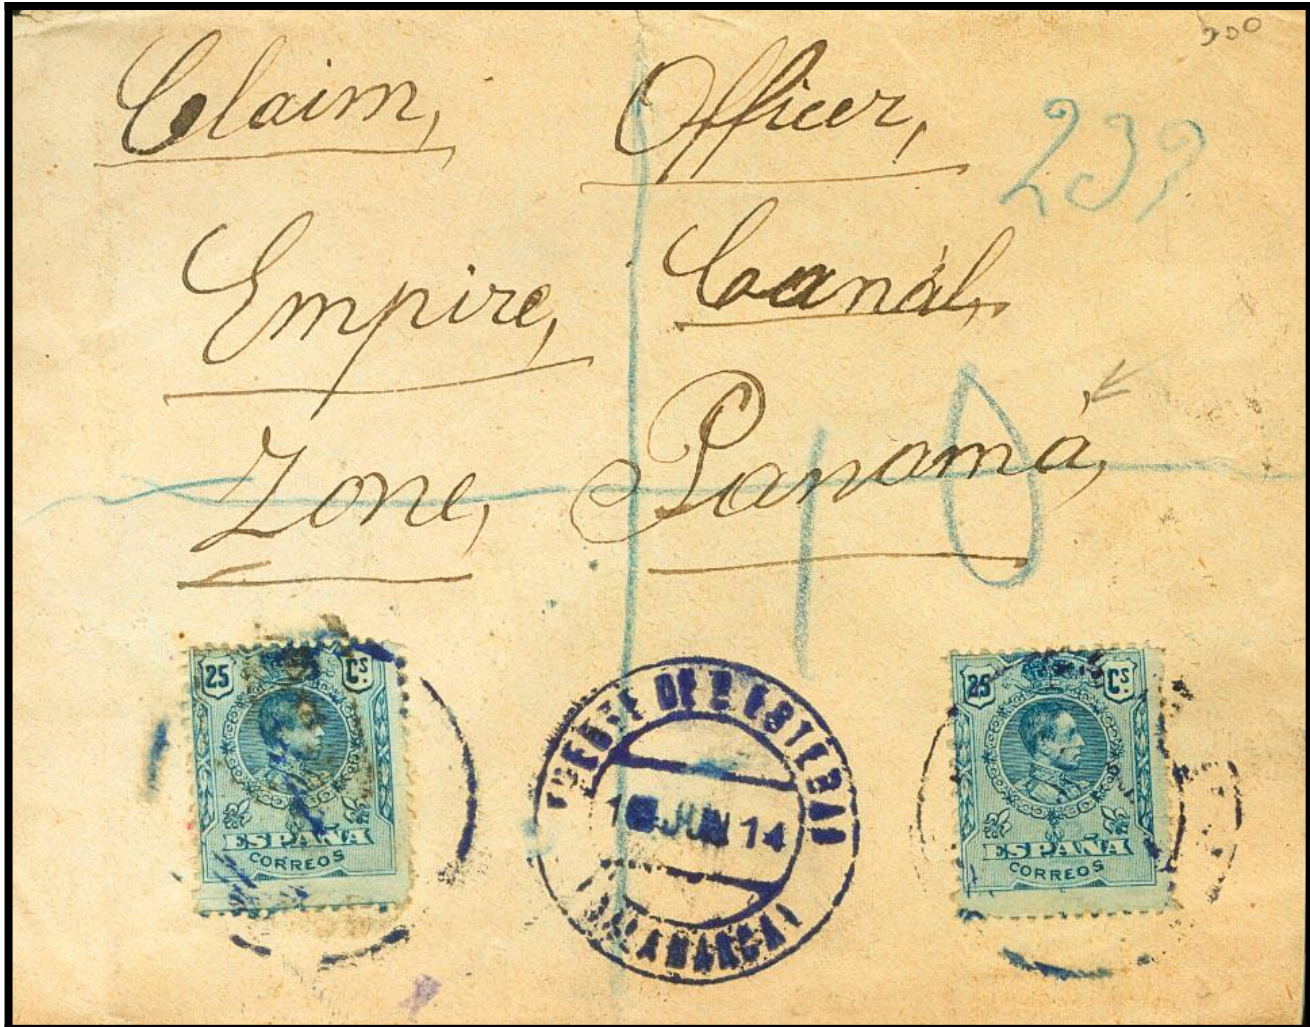 200
Claim, Officer,
23?
Empire, Canál,
10
Zone, Panamá,
25 Cs.
ESPAÑA
CORREOS
FUENTE DE S. ESTEBAN
JUN 14
(SALAMANCA)
25 Cs.
ESPAÑA
CORREOS